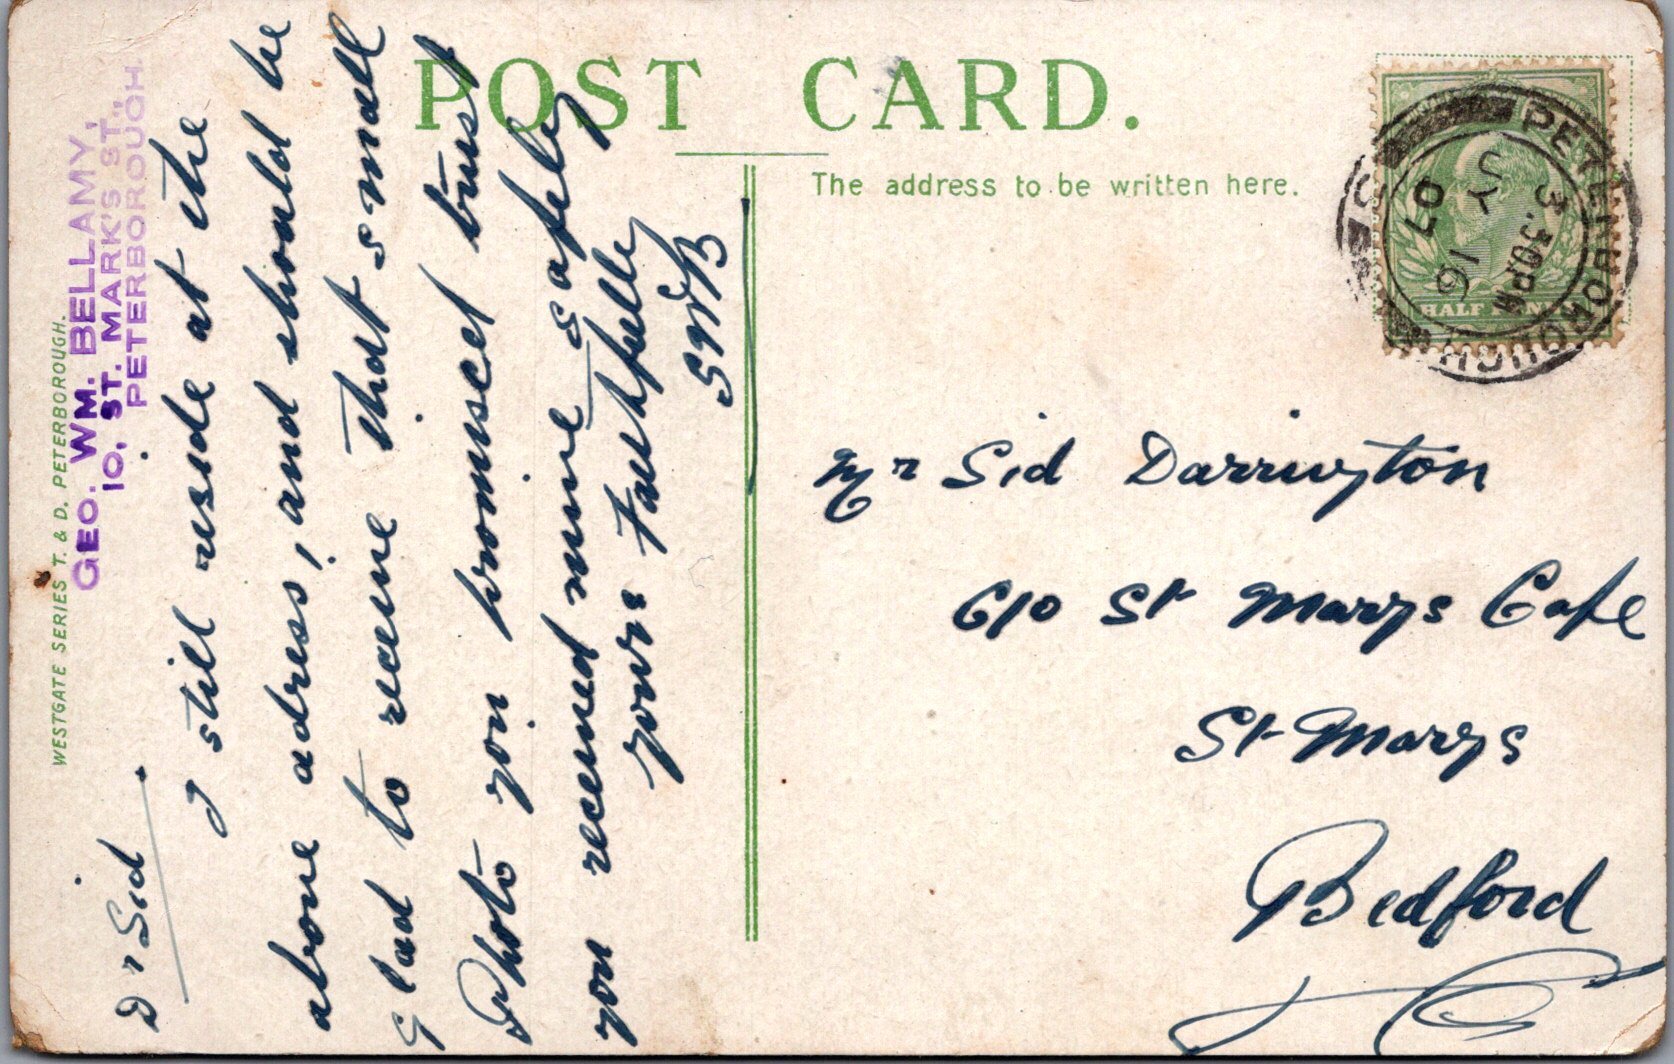 POST CARD.
The address to be written here.
WESTGATE SERIES T. & D. PETERBOROUGH.
GEO. WM. BELLAMY,
10, ST. MARK'S ST.,
PETERBOROUGH.
Dr Sid
I still reside at the
above adress, and should be
glad to receive that small
Photo you promised trust
you received mine safely
yours Faithfully
GWB
PETERBOROUGH
3.30PM
JY 16
07
HALF PENNY
Mr Sid Darrington
C/o St Marys Cafe
St Marys
Bedford